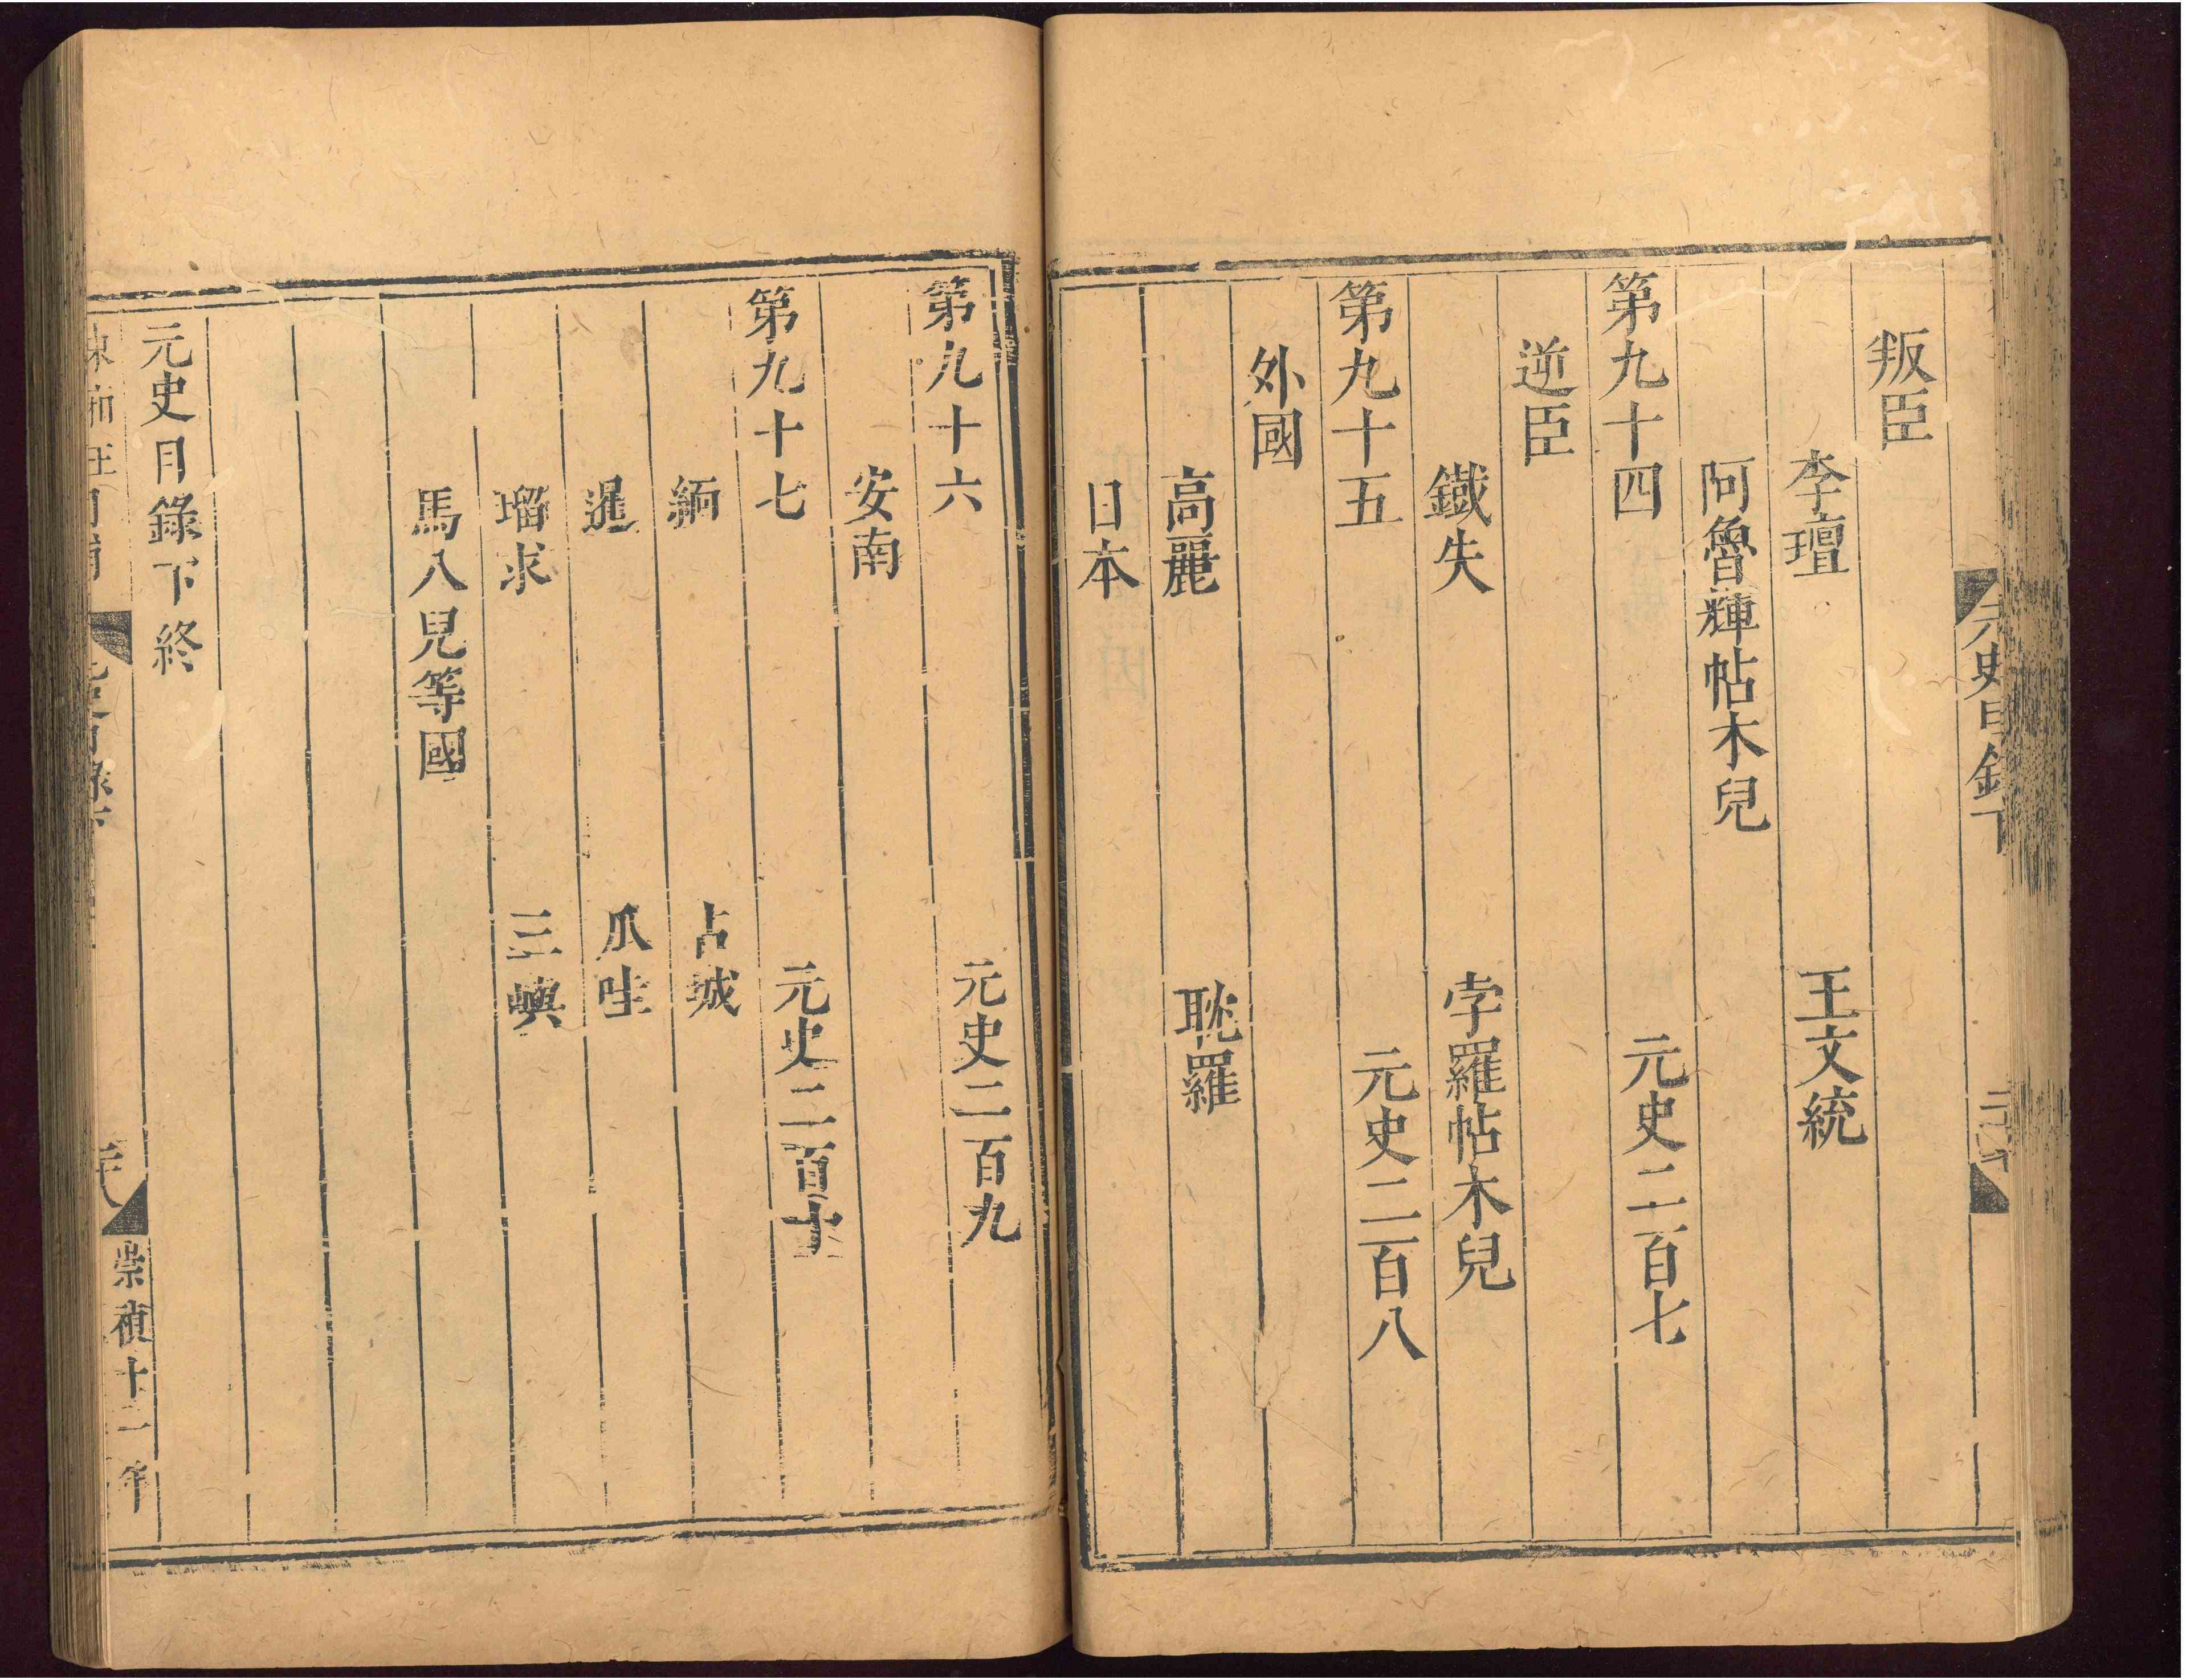 元史目錄下
叛臣
李璮 王文統
阿魯輝帖木兒
第九十四 元史二百七
逆臣
鐵失 孛羅帖木兒
第九十五 元史二百八
外國
高麗 耽羅
日本
第九十六 元史二百九
安南
第九十七 元史二百十
緬 占城
暹 爪哇
瑠求 三嶼
馬八兒等國
元史目錄下終
崇禎十二年